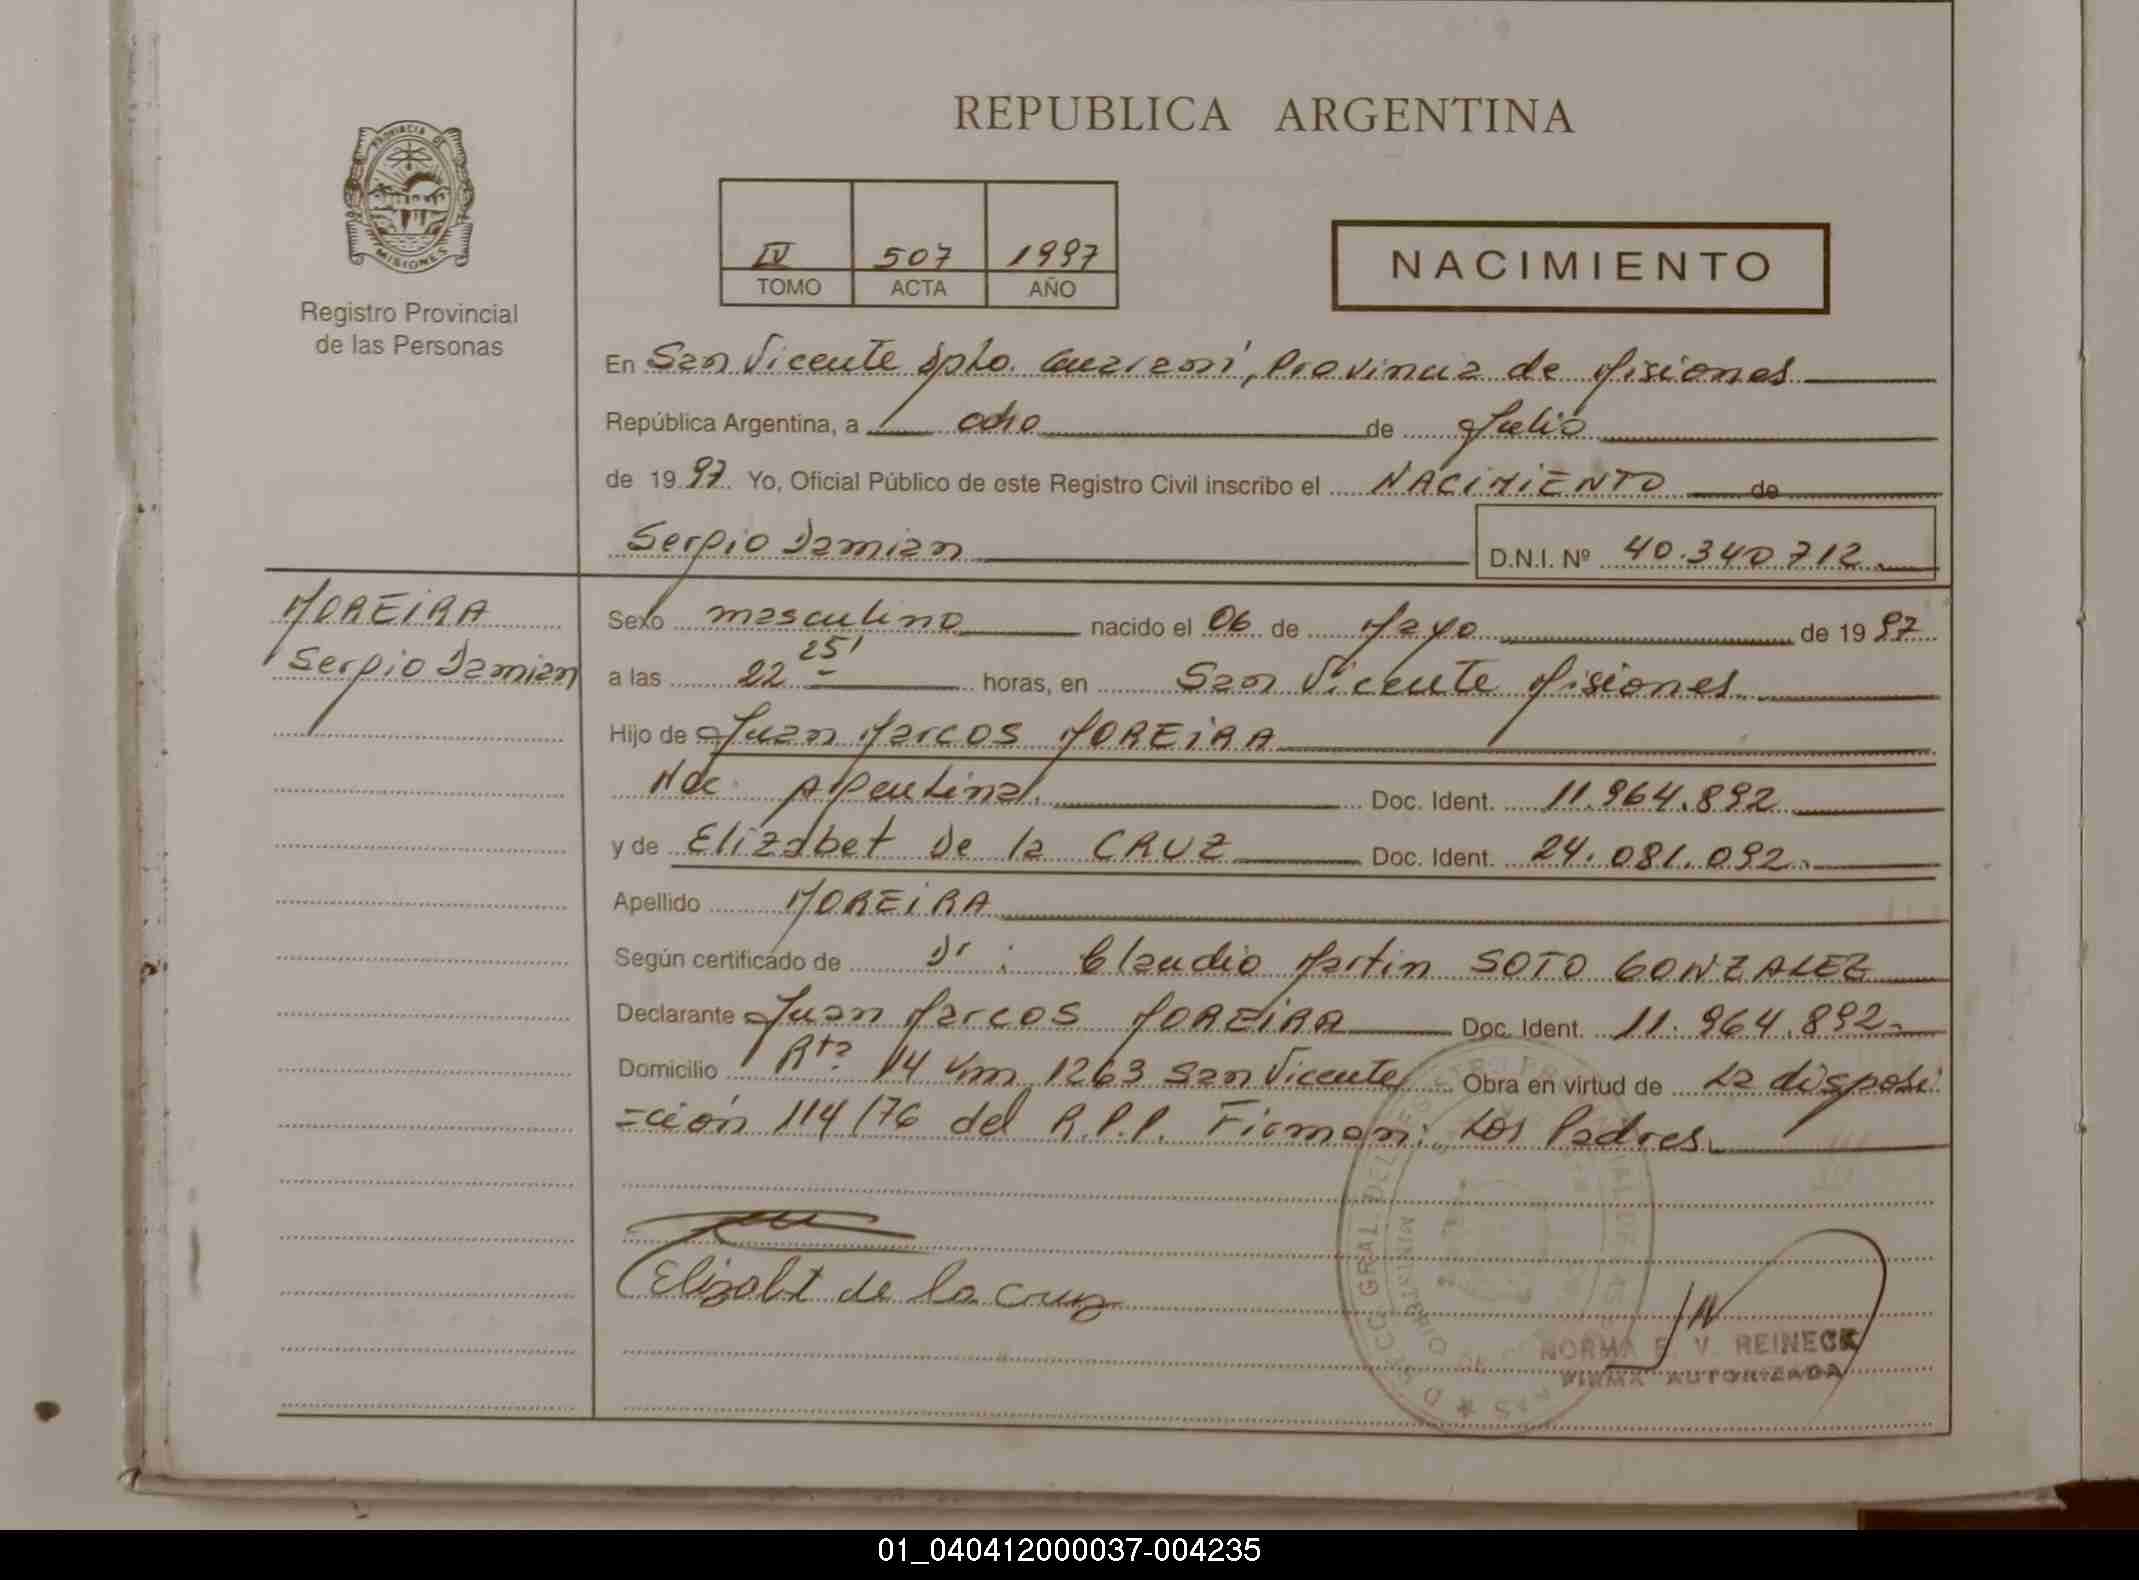 REPUBLICA ARGENTINA
PROVINCIA DE MISIONES
Registro Provincial
de las Personas
IV 507 1997
TOMO ACTA AÑO
NACIMIENTO
En San Vicente Dpto. Guaraní, Provincia de Misiones
República Argentina, a ocho de Julio
de 1997. Yo, Oficial Público de este Registro Civil inscribo el NACIMIENTO de
Sergio Damian D.N.I. Nº 40.340.712.
MOREIRA
Sergio Damian
Sexo masculino nacido el 06 de Mayo de 1997
a las 22 25' horas, en San Vicente Misiones
Hijo de Juan Marcos MOREIRA
Nac. Argentina Doc. Ident. 11.964.892
y de Elizabet De la CRUZ Doc. Ident. 24.081.092.
Apellido MOREIRA
Según certificado de Dr: Claudio Martin SOTO GONZALEZ
Declarante Juan Marcos MOREIRA Doc. Ident. 11.964.892.
Domicilio Rta 14 Km 1263 San Vicente Obra en virtud de La disposi
=ción 114/76 del R.P.P. Firman: Los Padres.
Elizabt de la cruz
NORMA E. V. REINECK
FIRMA AUTORIZADA
01_040412000037-004235